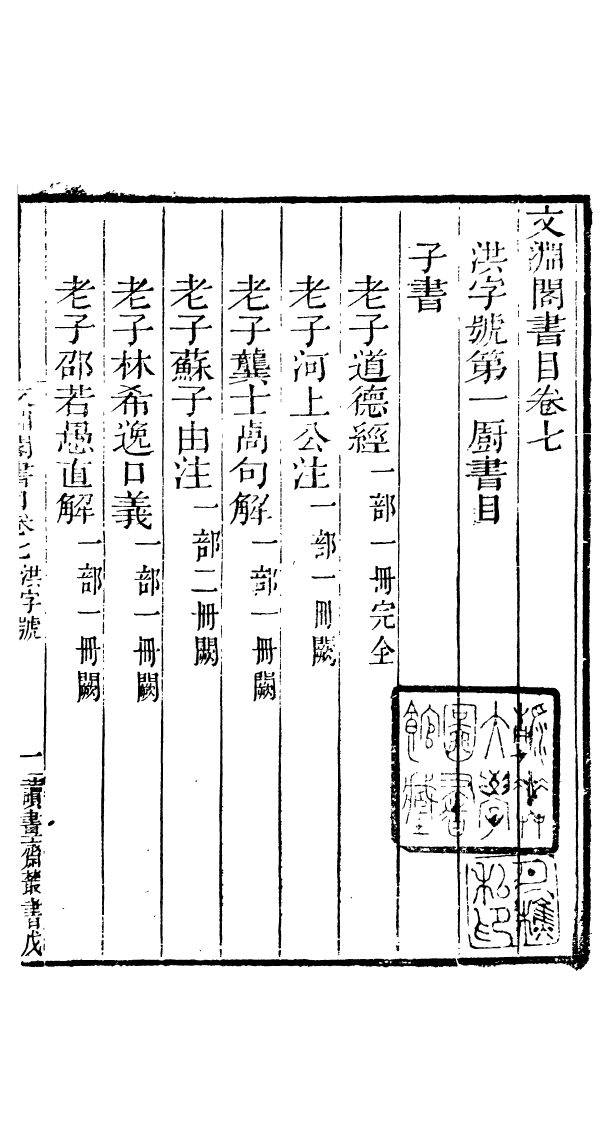 文淵閣書目卷七
洪字號第一廚書目
子書
老子道德經一部一冊完全
老子河上公注一部一冊闕
老子龔士卨句解一部一冊闕
老子蘇子由注一部二冊闕
老子林希逸口義一部一冊闕
老子邵若愚直解一部一冊闕
文淵閣書目卷七 洪字號
一
讀書齋叢書戊
大學
圖書
館藏
私印